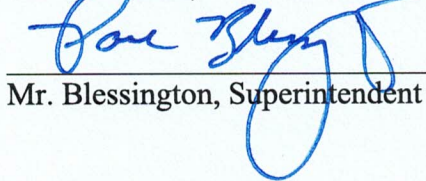 Mr. Blessington, Superintendent